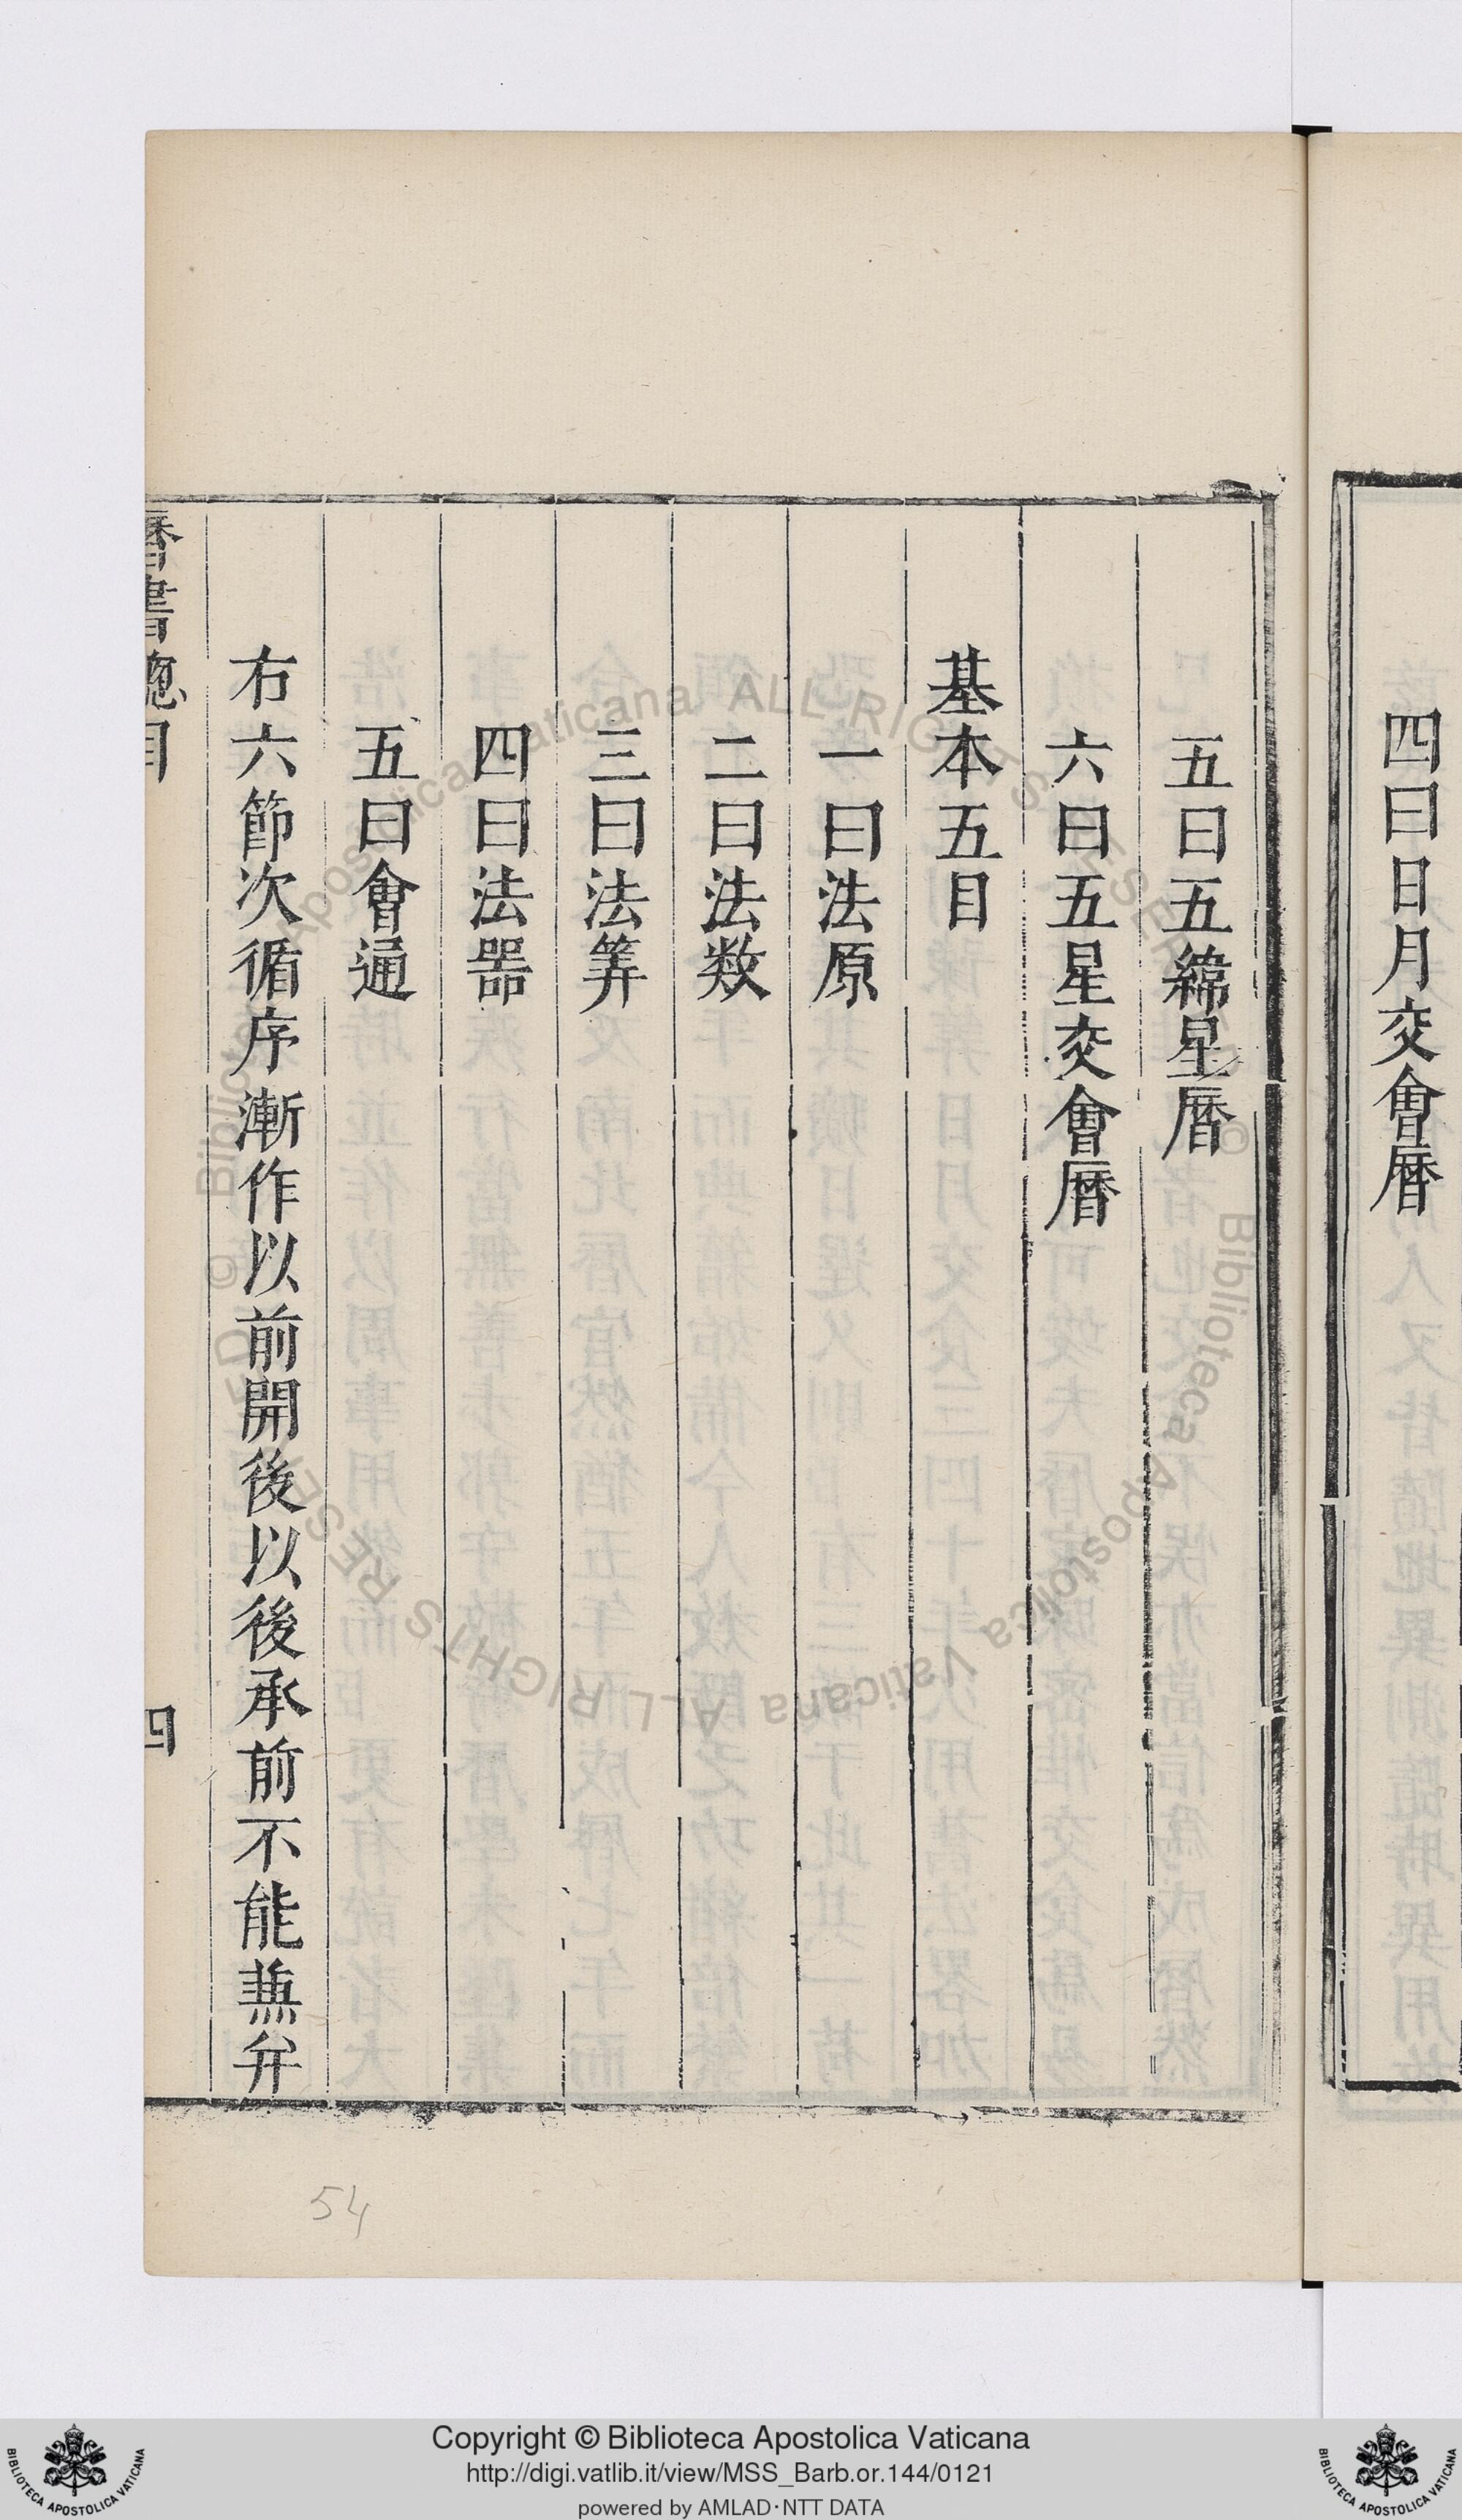 四曰日月交會曆
五曰五緯星曆
六曰五星交會曆
基本五目
一曰法原
二曰法数
三曰法筭
四曰法噐
五曰會通
右六節次循序漸作以前開後以後承前不能兼并
曆書總目
四
54
Copyright © Biblioteca Apostolica Vaticana
http://digi.vatlib.it/view/MSS_Barb.or.144/0121
powered by AMLAD·NTT DATA
© Biblioteca Apostolica Vaticana ALL RIGHTS RESERVED
© Biblioteca Apostolica Vaticana ALL RIGHTS RESERVED
BIBLIOTECA APOSTOLICA VATICANA
BIBLIOTECA APOSTOLICA VATICANA